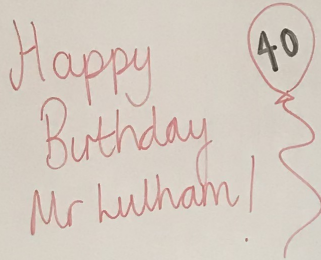 Happy
Birthday
Mr Lulham!
40